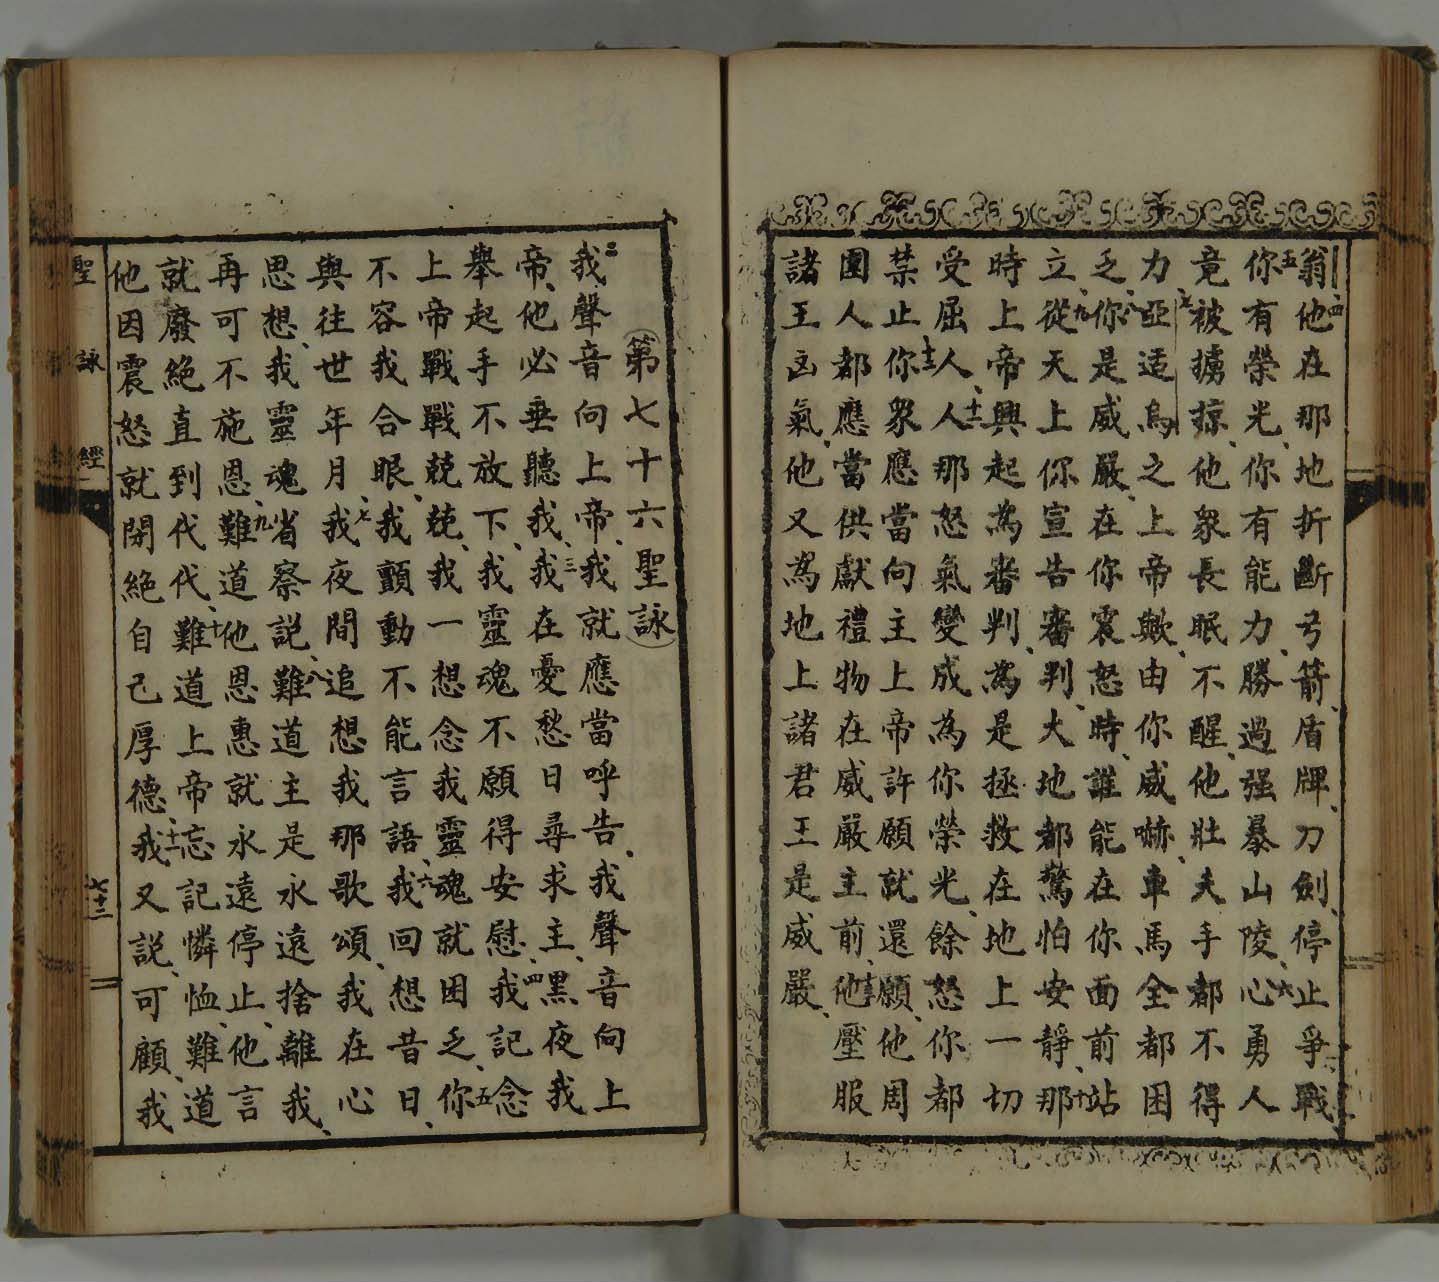 翁、四他在那地折斷弓箭、盾牌、刀劍、停止爭戰、
五你有榮光、你有能力、勝過强暴山陵、六心勇人
竟被擄掠、他衆長眠不醒、他壯夫手都不得
力、七亞适烏之上帝歟、由你威嚇、車馬全都困
乏、八你是威嚴、在你震怒時、誰能在你面前站
立、九從天上你宣告審判、大地都驚怕安靜、十那
時上帝興起為審判、為是拯救在地上一切
受屈人、十一人那怒氣變成為你榮光、餘怒你都
禁止、十二你衆應當向主上帝許願就還願、他周
圍人都應當供獻禮物在威嚴主前、十三他壓服
諸王凶氣、他又為地上諸君王是威嚴、
(第七十六聖詠)
二我聲音向上帝、我就應當呼告、我聲音向上
帝、他必垂聽我、三我在憂愁日尋求主、黑夜我
舉起手不放下、我靈魂不願得安慰、四我記念
上帝戰戰兢兢、我一想念我靈魂就困乏、五你
不容我合眼、我顫動不能言語、六我回想昔日、
與往世年月、七我夜間追想我那歌頌、我在心
思想、我靈魂省察説、八難道主是永遠捨離我、
再可不施恩、九難道他恩惠就永遠停止、他言
就廢絶直到代代、十難道上帝忘記憐恤、難道
他因震怒就閉絶自己厚德、十一我又説、可顧、我
聖詠經
七十三